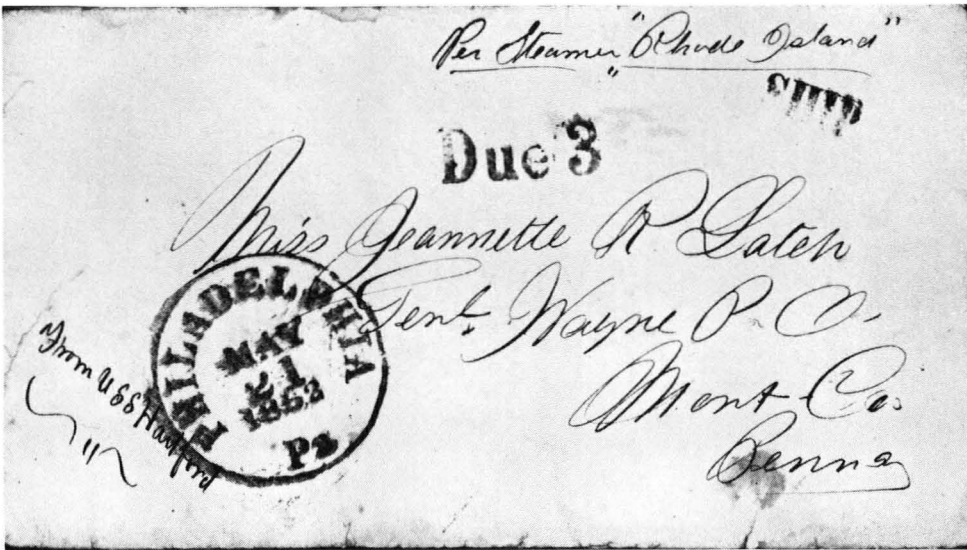 Per Steamer "Rhode Island"
SHIP
Due 3
Miss Jeannette R. Latch
Genl. Wayne P. O.
Mont Co.
Penna
PHILADELPHIA
MAY
21
1862
Pa
From USS Hartford
"